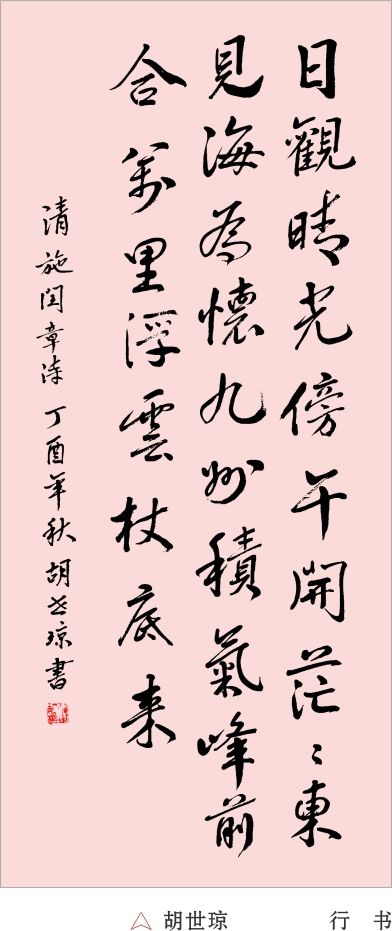 日觀晴光傍午開茫茫東
見海為懷九州積氣峰前
合萬里浮雲杖底来
清施閏章詩丁酉年秋胡世琼書
胡世琼 行书